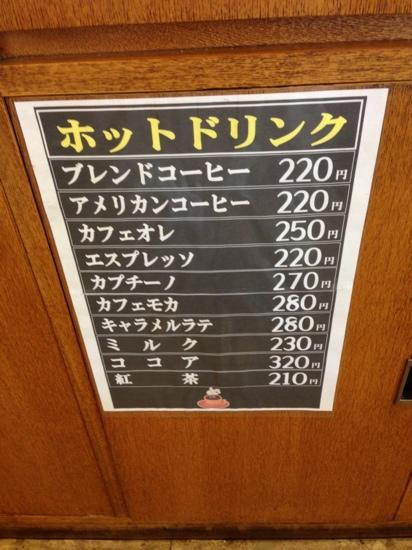 ホットドリンク
ブレンドコーヒー 220円
アメリカンコーヒー 220円
カフェオレ 250円
エスプレッソ 220円
カプチーノ 270円
カフェモカ 280円
キャラメルラテ 280円
ミルク 230円
ココア 320円
紅茶 210円